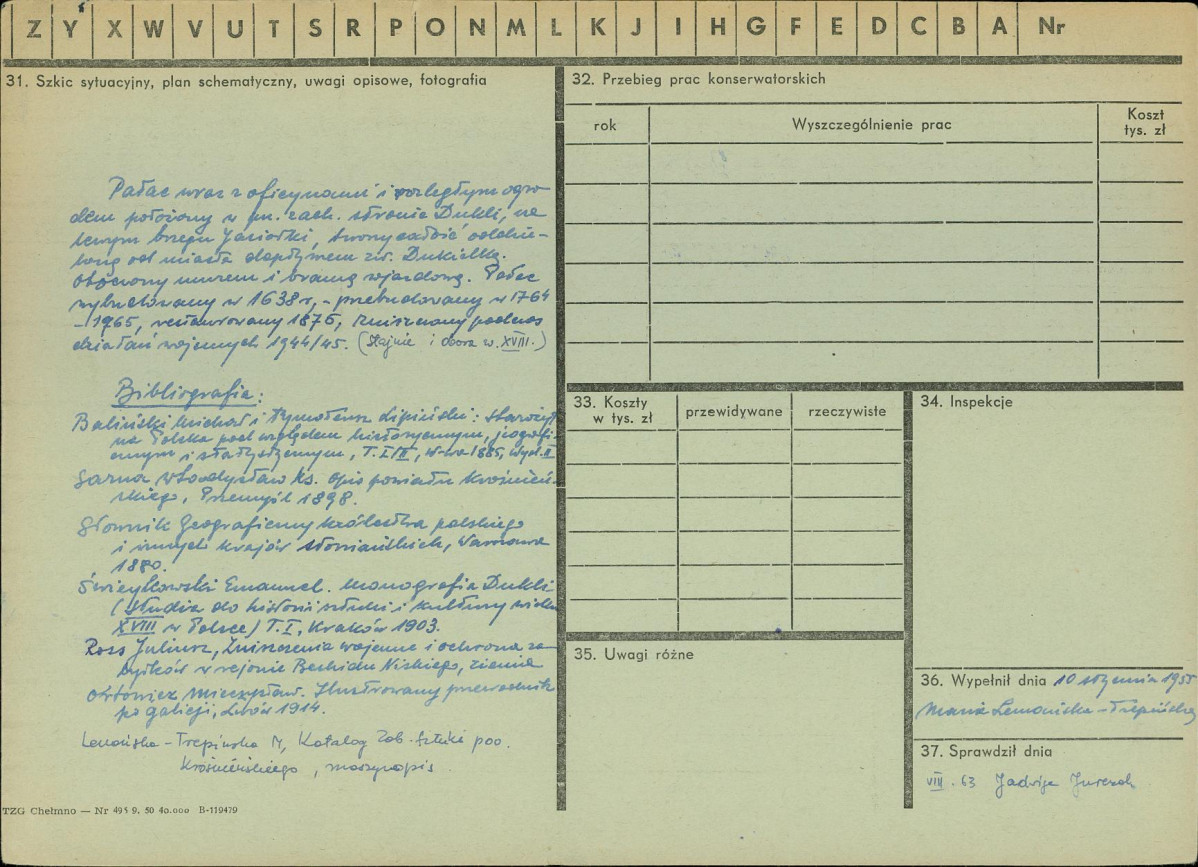 Z Y X W V U T S R P O N M L K J I H G F E D C B A Nr
31. Szkic sytuacyjny, plan schematyczny, uwagi opisowe, fotografia
Pałac wraz z oficynami i rozległym ogro-
dem położony w pn. zach. stronie Dukli, na
lewym brzegu Jasiołki, tworzy całość oddzie-
loną od miasta dopływem zw. Dukiełką.
Otoczony murem i bramą wjazdową. Pałac
wybudowany w 1638 r, - przebudowany w 1764
-1965, restaurowany 1876, zniszczony podczas
działań wojennych 1944/45. (Stajnie i obora w. XVIII.)
Bibliografia:
Baliński Michał i Tymoteusz Lipiński: Starożyt
na Polska pod względem historycznym, jeografi-
cznym i statystycznym, T. I/II, W-wa 1885, Wyd. II
Sarna Władysław Ks. Opis powiatu krośnień-
skiego, Przemyśl 1898.
Słownik Geograficzny Królestwa polskiego
i innych krajów słowiańskich, Warszawa
1880.
Świeykowski Emanuel. Monografia Dukli
(Studia do historii sztuki i kultury wieku
XVIII w Polsce) T. I, Kraków 1903.
Ross Juliusz, Zniszczenia wojenne i ochrona za-
bytków w rejonie Beskidu Niskiego, ziemia
Orłowicz Mieczysław. Ilustrowany przewodnik
po galicji, Lwów 1914.
Lenońska-Trepińska M, Katalog Zab. Sztuki pow.
Krośnieńskiego, maszynopis
TZG Chełmno — Nr 495 9. 50 40.000 B-119479
32. Przebieg prac konserwatorskich
rok
Wyszczególnienie prac
Koszt
tys. zł
33. Koszty
w tys. zł
przewidywane
rzeczywiste
34. Inspekcje
35. Uwagi różne
36. Wypełnił dnia 10 stycznia 1955
Maria
37. Sprawdził dnia
VIII. 63 Jadwiga